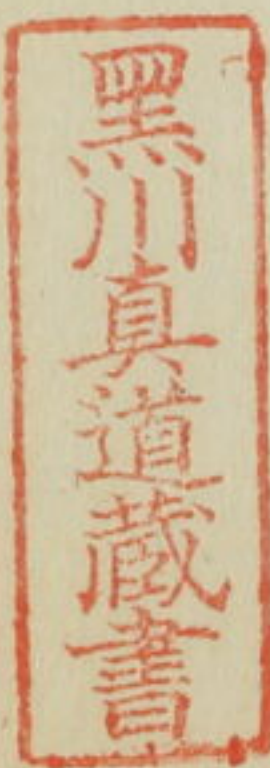 黑川真道蔵書